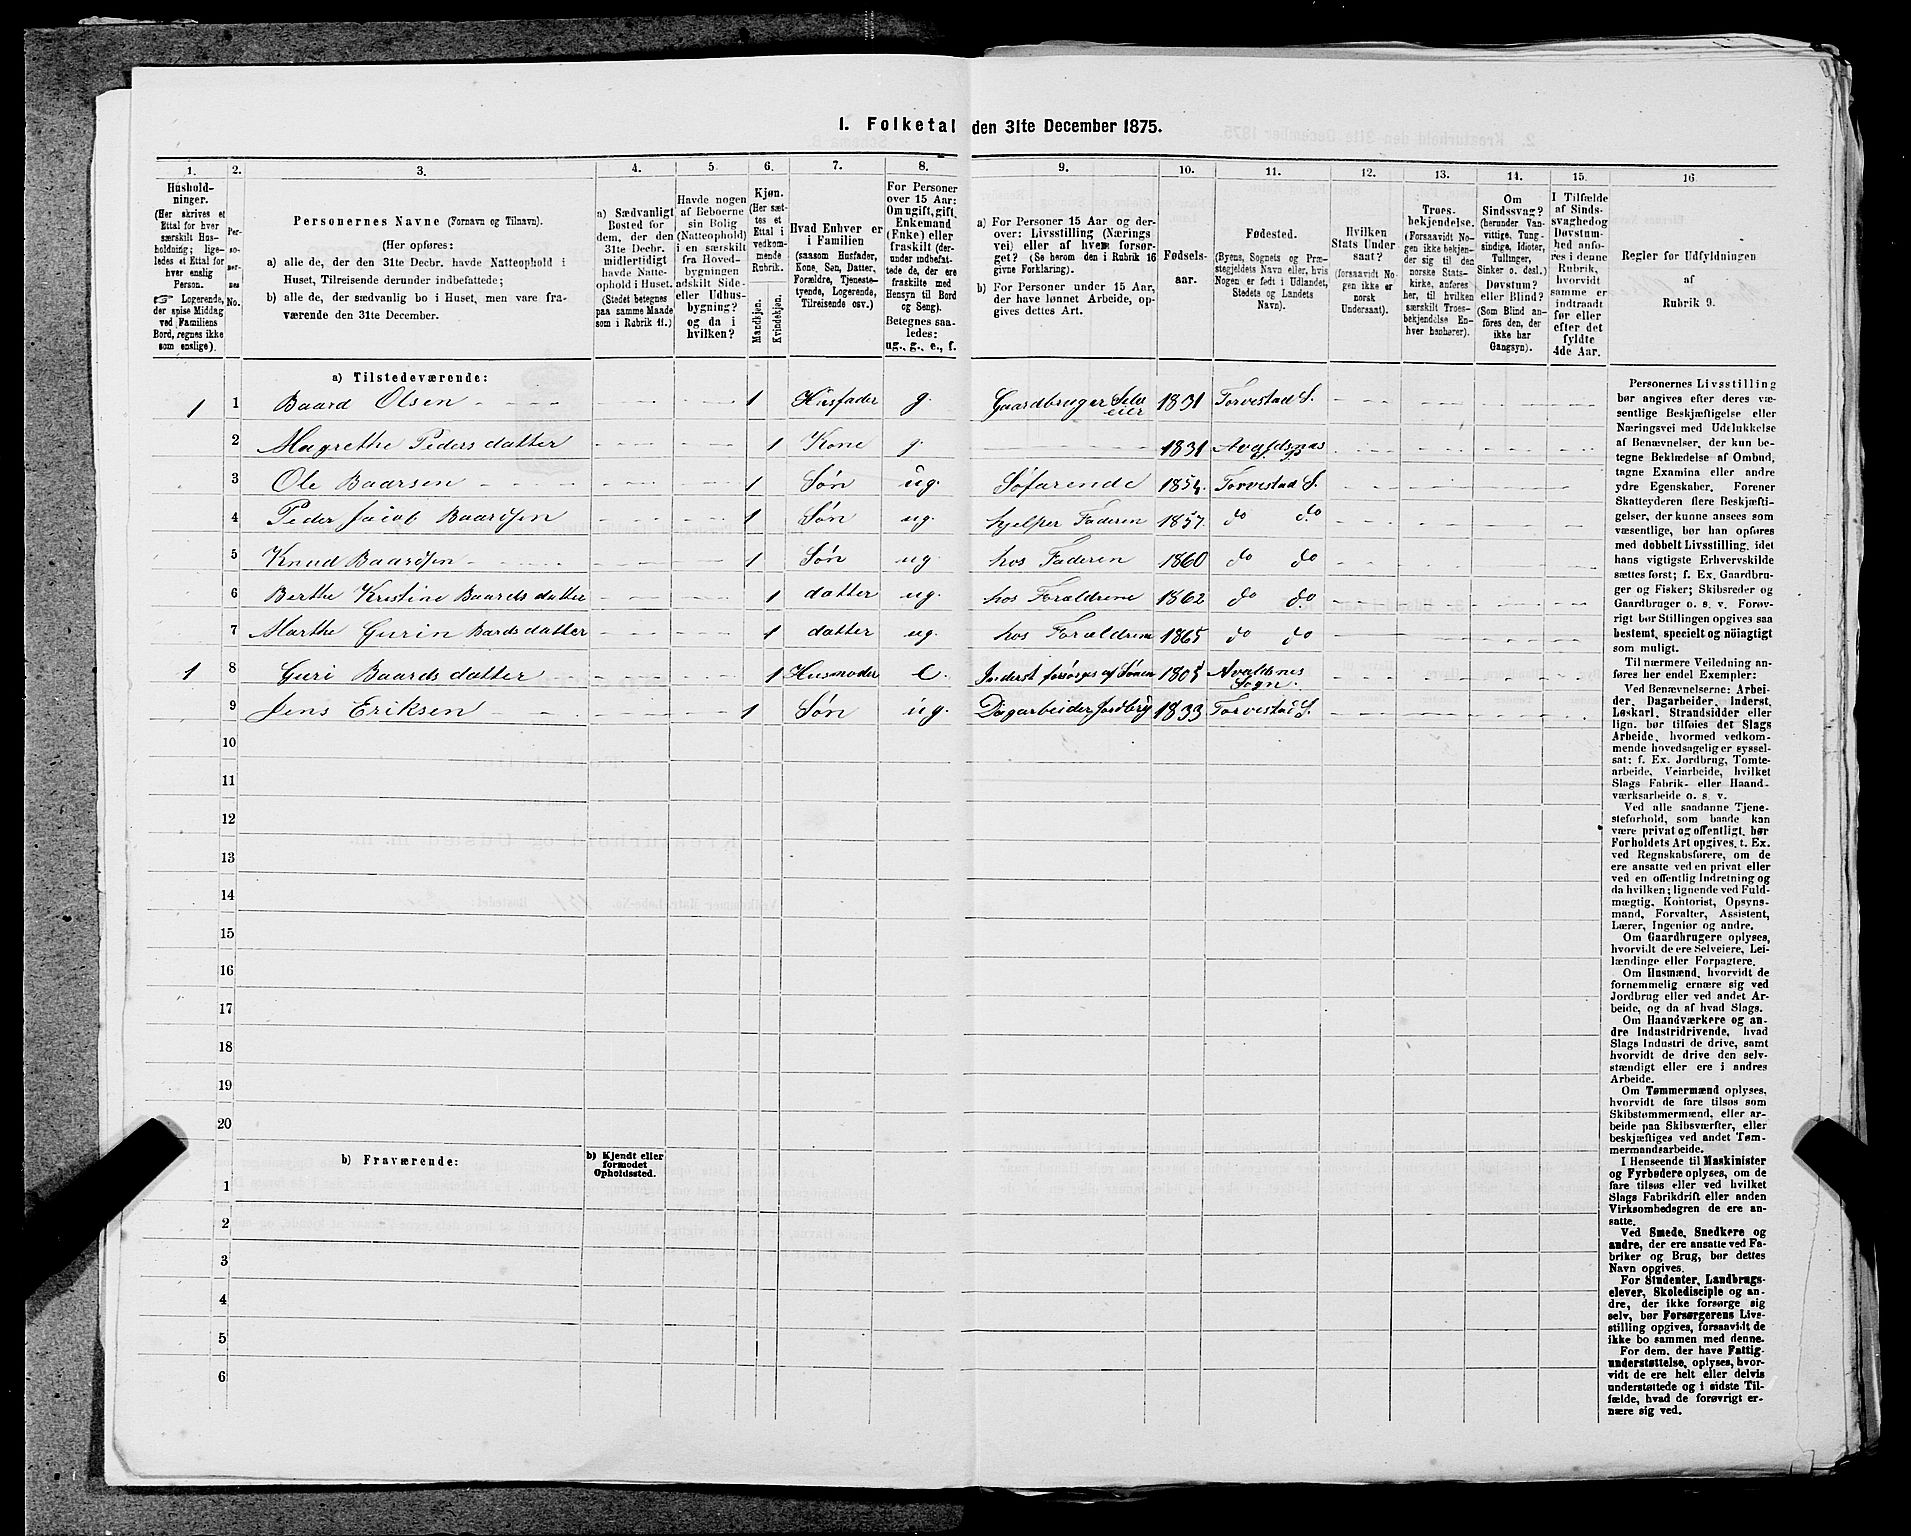 1. Folketal den 31te December 1875.
1.
Husholdninger.
(Her skrives et
Ettal for hver
særskilt Husholdning; ligeledes
et Ettal for
hver enslig
Person.
☞ Logerende,
der spise Middag
ved Familiens
Bord, regnes ikke
som enslige).
2.
Personernes
No.
3.
Personernes Navne (Fornavn og Tilnavn).
(Her opføres:
a) alle de, der den 31te Decbr. havde Natteophold i
Huset, Tilreisende derunder indbefattede;
b) alle de, der sædvanlig bo i Huset, men vare fraværende
den 31te December.
4.
a) Sædvanligt
Bosted for
dem, der den
31te Decbr.
midlertidigt
havde Natteophold
i Huset.
(Stedet betegnes
paa samme Maade
som i Rubrik 11.)
5.
Havde nogen
af Beboerne
sin Bolig
(Natteophold)
i en særskilt
fra Hovedbygningen
adskilt Side-
eller Udhusbygning?
og da i
hvilken?
6.
Kjøn.
(Her sættes
et
Ettal i
vedkommende
Rubrik.
Mandkjøn.
Kvindekjøn.
7.
Hvad Enhver er
i Familien
(saasom Husfader,
Kone, Søn, Datter,
Forældre, Tjenestetyende,
Logerende,
Tilreisende osv.)
8.
For Personer
over 15 Aar:
Om ugift, gift,
Enkemand
(Enke) eller
fraskilt (derunder
indbefattede
de, der ere
fraskilte med
Hensyn til Bord
og Seng).
Betegnes saaledes:
ug., g., e., f.
9.
a) For Personer 15 Aar og derover:
Livsstilling (Næringsvei)
eller af hvem forsørget?
(Se herom den i Rubrik 16
givne Forklaring).
b) For Personer under 15 Aar,
der have lønnet Arbeide, opgives
dettes Art.
10.
Fødselsaar.
11.
Fødested.
(Byens, Sognets og Præstegjeldets
Navn eller, hvis
Nogen er født i Udlandet,
Stedets og Landets
Navn).
12.
Hvilken
Stats Undersaat?
(forsaavidt Nogen
ikke er
norsk
Undersaat).
13.
Troesbekjendelse.
(Forsaavidt Nogen
ikke bekjender
sig til den
norske Statskirke,
anføres
her, til hvilken
særskilt Troesbekjendelse
Enhver
hører).
14.
Om
Sindssvag?
(herunder Vanvittige,
Tungsindige,
Idioter,
Tullinger,
Sinker o. desl.)
Døvstum?
eller Blind?
(Som Blind anføres
den, der
ikke har
Gangsyn).
15.
I Tilfælde
af Sindssvaghed
og
Døvstumhed
anføres
i denne
Rubrik,
hvorvidt
samme er
indtraadt
før eller
efter det
fyldte
4de Aar.
16
Regler for Udfyldningen
af
Rubrik 9.
a) Tilstedeværende:
1 1 Baard Olsen 1 Husfader g. Gaardbruger Selveier 1831 Torvestad S.
2 Magrethe Peders datter 1 Kone g. 1831 Avaldsnæs S.
3 Ole Baarsen 1 Søn ug. Søfarende 1854. Torvestad S.
4 Peder Jacob Baardsen 1 Søn ug. hjelper Faderen 1857. do do
5 Knud Baardsen 1 Søn ug hos Faderen 1860 do do
6 Berthe Kristine Baards datter 1 datter ug. hos Foraldrene 1862 do do
7 Marthe Gurin Bards datter 1 datter ug. hos Foraldrene 1865 do do
1 8 Guri Baards datter 1 Husmoder e. Inderst forsørges af Sønen 1805 Avaldsnes Sogn.
9 Jens Eriksen 1 Søn ug. Dagarbeider Jordbrug 1833 Torvestad S.
10
11
12
13
14
15
16
17
18
19
20
b) Fraværende:
b) Kjendt eller
formodet
Opholdssted.
1
2
3
4
5
6
Personernes Livsstilling
bør angives efter deres væsentlige
Beskjæftigelse eller
Næringsvei med Udelukkelse
af Benævnelser, der kun betegne
Beklædelse af Ombud,
tagne Examina eller andre
ydre Egenskaber. Forener
Skatteyderen flere Beskjæftigelser,
der kunne ansees som
væsentlige, bør han opføres
med dobbelt Livsstilling, idet
hans vigtigste Erhvervskilde
sættes først; f. Ex. Gaardbruger
og Fisker; Skibsreder og
Gaardbruger o. s. v. Forøvrigt
bør Stillingen opgives saa
bestemt, specielt og nöiagtigt
som muligt.
Til nærmere Veiledning anføres
her endel Exempler:
Ved Benævnelserne: Arbeider,
Dagarbeider, Inderst,
Løskarl, Strandsidder eller
lign. bør tilføies det Slags
Arbeide, hvormed vedkommende
hovedsagelig er sysselsat;
f. Ex. Jordbrug, Tomtearbeide,
Veiarbeide, hvilket
Slags Fabrik- eller Haandværksarbeide
o. s. v.
Ved alle saadanne Tjenesteforhold,
som baade kan
være privat og offentligt, bør
Forholdets Art opgives, t. Ex.
ved Regnskabsførere, om de
ere ansatte ved en privat eller
ved en offentlig Indretning og
da hvilken; lignende ved Fuldmægtig,
Kontorist, Opsynsmand,
Forvalter, Assistent,
Lærer, Ingeniør og andre.
Om Gaardbrugere oplyses,
hvorvidt de ere Selveiere, Leilændinge
eller Forpagtere.
Om Husmænd, hvorvidt de
fornemmelig ernære sig ved
Jordbrug eller ved andet Arbeide,
og da af hvad Slags.
Om Haandværkere og andre
Industridrivende, hvad
Slags Industri de drive, samt
hvorvidt de drive den selvstændigt
eller ere i andres
Arbeide.
Om Tømmermænd oplyses,
hvorvidt de fare tilsøs som
Skibstømmermænd, eller arbeide
paa Skibsværfter, eller
beskjæftiges ved andet Tømmermandsarbeide.
I Henseende til Maskinister
og Fyrbødere oplyses, om de
fare tilsøs eller ved hvilket
Slags Fabrikdrift eller anden
Virksomhedsgren de ere ansatte.
Ved Smede, Snedkere og
andre, der ere ansatte ved Fabriker
og Brug, bør dettes
Navn opgives.
For Studenter, Landbrugselever,
Skoledisciple og andre,
der ikke forsørge sig
selv, bør Forsørgerens Livsstilling
opgives, forsaavidt de
ikke bo sammen med denne.
For dem, der have Fattigunderstøttelse,
oplyses, hvorvidt
de ere helt eller delvis
understøttede og i sidste Tilfælde,
hvad de forøvrigt ernære
sig ved.